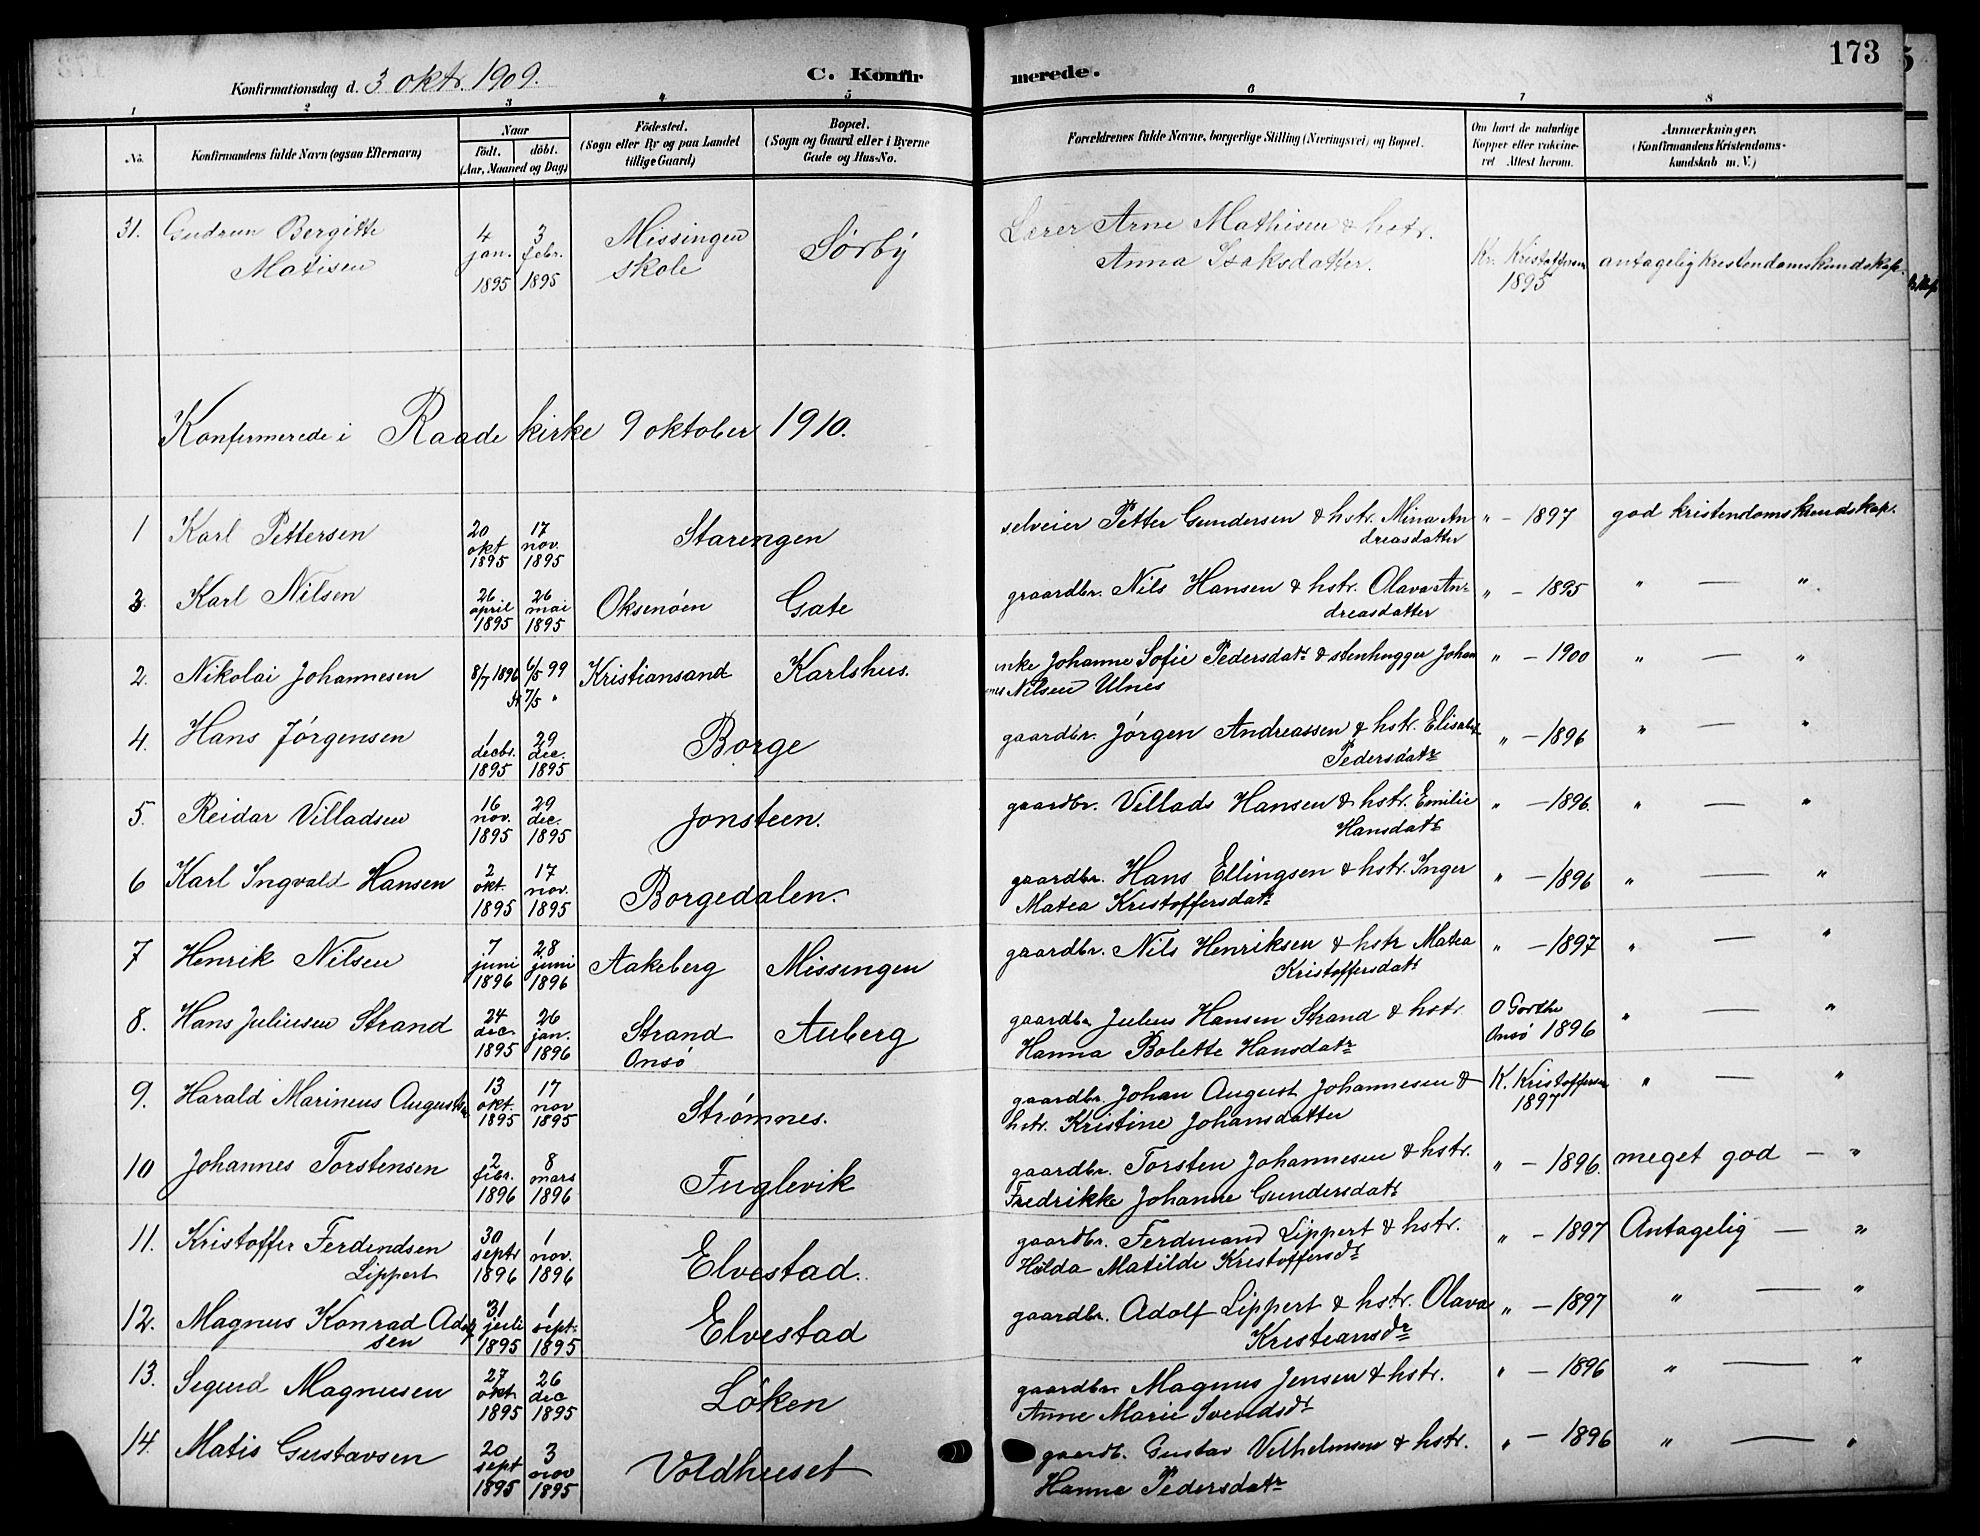 173
Konfirmationsdag d. 3 oktr. 1909.
C. Konfirmerede.
1 2 3 4 5 6 7 8
No.
Konfirmandens fulde Navn (ogsaa Efternavn)
Naar
födt. döbt.
(Aar, Maaned og Dag)
Födested.
(Sogn eller By og paa Landet
tillige Gaard)
Bopæl.
(Sogn og Gaard eller i Byerne
Gade og Hus-No.
Forældrenes fulde Navne, borgerlige Stilling (Næringsvei) og Bopæl.
Om havt de naturlige
Kopper eller vakcine-
ret Attest herom.
Anmærkninger.
(Konfirmandens Kristendoms-
kundskab m. V.)
31. Gudrun Bergitte Matisen 4 jan. 1895 3 febr. 1895 Missingen skole Sørby Lærer Arne Mathisen & hstr. Anna Isaksdatter. Kr. Kristoffersen 1895 antagelig kristendomskundskap.
Konfirmerede i Raade kirke 9 oktober 1910.
1 Karl Pettersen 20 okt 1895 17 nov. 1895 Starengen selveier Petter Gundersen & hstr. Mina Andreasdatter " – 1897 god kristendomskundskap.
3. Karl Nilsen 26 april 1895 26 mai 1895 Oksenöen Gate graardbr. Nils Hansen & hstr. Olava Andreasdatter " – 1895 " — "
2. Nikolai Johannesen 8/7 1896 6/5 99 St 7/5 " Kristiansand Karlshus. enke Johanne Sofie Pedersdatr & stenhugger Johannes Nilsen Ulnes " – 1900 " — "
4. Hans Jörgensen 1 decbr. 1895 29 dec. 1895 Borge gaardbr. Jörgen Andreassen & hstr. Elisabet Pedersdatr " – 1896 " — "
5. Reidar Villadsen 16 nov. 1895 29 dec. 1895 Jonsteen. gaardbr. Villads Hansen & hstr. Emilie Hansdatr " – 1896. " — "
6 Karl Ingvald Hansen 2 okt. 1895 17 nov. 1895 Borgedalen. gaardbr. Hans Ellingsen & hstr. Inger Matea Kristoffersdatr " – 1896 " — "
7 Henrik Nilsen 7 juni 1896 28 juni 1896 Aakeberg Missingen gaardbr. Nils Henriksen & hstr Matea Kristoffersdatr " – 1897 " — "
8. Hans Juliusen Strand 24 dec. 1895 26 jan. 1896 Strand Onsö Auberg gaardbr Julius Hansen Strand & hstr Hanna Bolette Hansdatr O Gorthe Onsö 1896 " — "
9. Harald Marineus Augustsen 13 okt. 1895 17 nov 1895 Strømnes. gaardbr. Johan August Johannesen & hstr. Kristine Johansdatter K. Kristoffersen 1897 " — "
10 Johannes Torstensen 2 febr. 1896 8 mars 1896 Fuglevik gaardbr. Torsten Johannesen & hstr. Fredrikke Johanne Gundersdatr " – 1896. meget god — "
11. Kristoffer Ferdindsen Lippert 30 septr 1896 1 nov. 1896 Elvestad. gaardbr. Ferdinand Lippert & hstr. Hilda Matilde Kristoffersdr " – 1897 Antagelig — "
12. Magnus Konrad Adolfsen 31 juli 1895 1 sept. 1895 Elvestad gaardbr. Adolf Lippert & hstr. Olava Kristiansdr " – 1897 " — "
13. Sigurd Magnusen 27 okt. 1895 26 dec 1895 Løken gaardbr. Magnus Jensen & hstr. Anne Marie Svendsdr " – 1896 " — "
14. Matis Gustavsen 20 sept 1895 3 nov 1895 Voldhuset gaardb. Gustav Vilhelmsen & hstr. Hanna Pedersdatr " – 1896 " — "